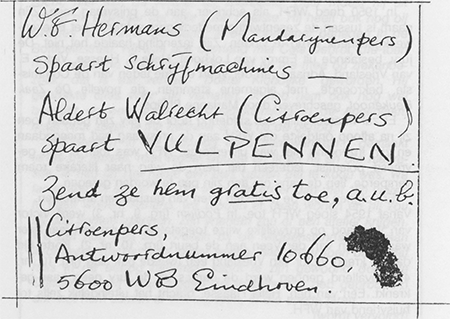 W.F. Hermans (Mandarijnenpers)
spaart schrijfmachines —
Aldert Walrecht (Citroenpers)
spaart VULPENNEN.
Zend ze hem gratis toe, a.u.b.:
Citroenpers,
Antwoordnummer 10660,
5600 WB Eindhoven.